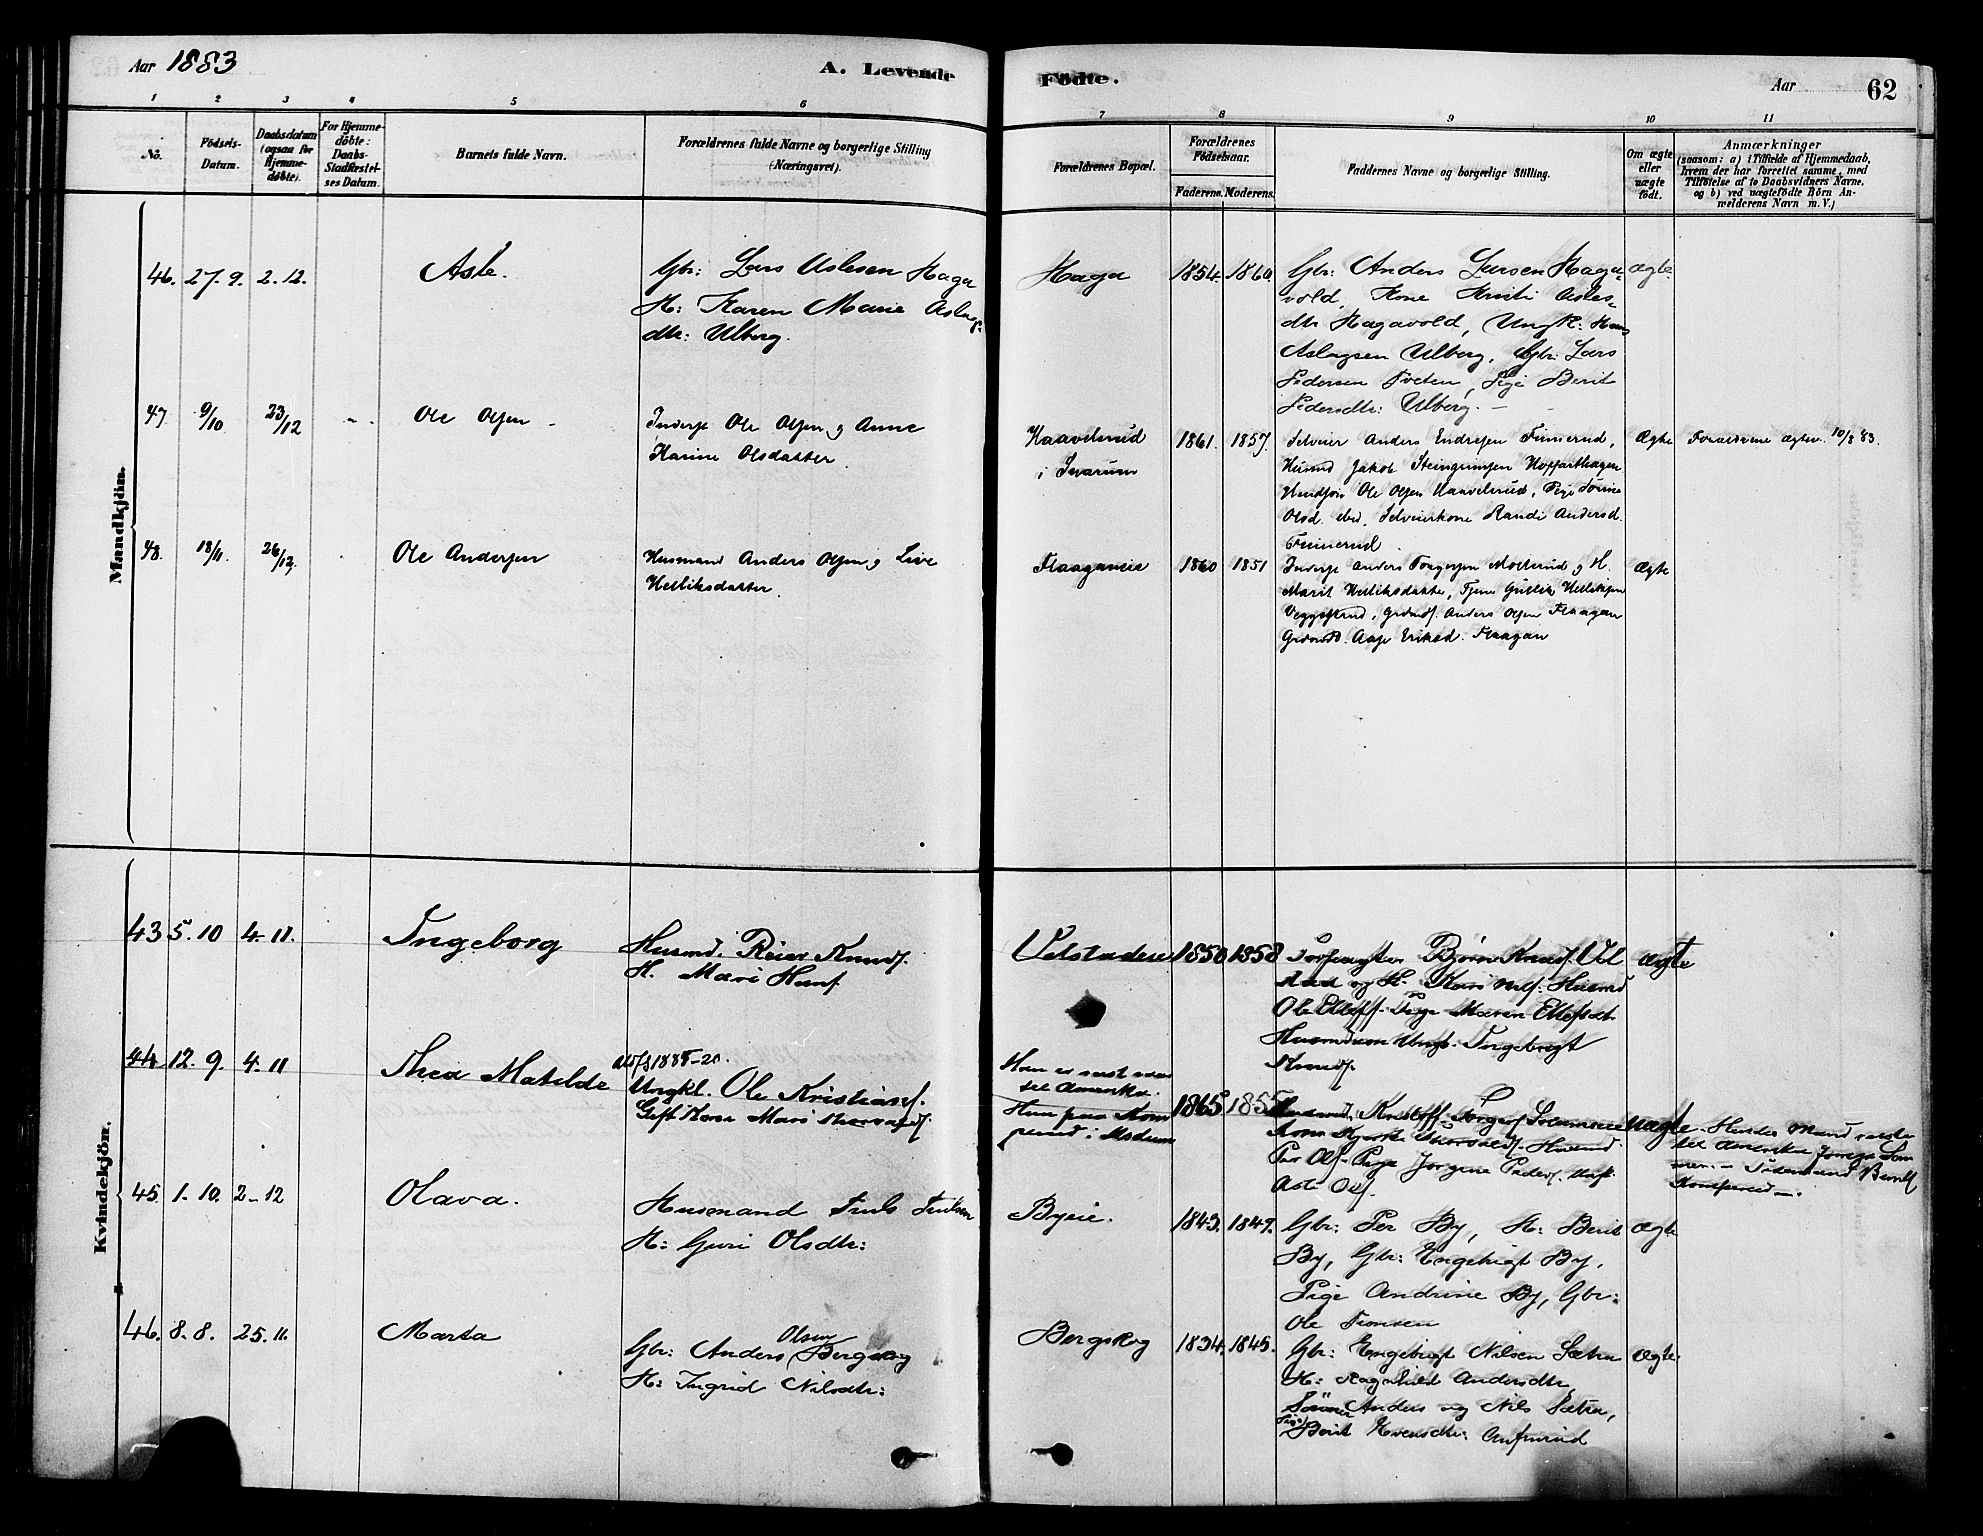 Aar 1883
A. Levende
Födte.
Aar
62
1 2 3 4 5 6
7 8 9 10 11
No.
Födsels-
Datum.
Daabsdatum
(ogsaa for
Hjemme-
döbte).
For Hjemme-
döbte:
Daabs-
Stadfæstel-
ses Datum.
Barnets fulde Navn.
Forældrenes fulde Navne og borgerlige Stilling
(Næringsvei).
Forældrenes Bopæl.
Forældrenes
Födselsaar.
Faderens. Moderens.
Faddernes Navne og borgerlige Stilling.
Om ægte
eller
uægte
födt.
Anmærkninger
(saasom: a) i Tilfælde af Hjemmedaab,
hvem der har forrettet samme, med
Tilföielse af to Daabsvidners Navne,
og b) ved uægtefödte Börn An-
melderens Navn m. V.)
Mandkjön.
46. 27. 9. 2. 12. Asle.
Gbr: Lars Aslesen Haga
H: Karen Marie Aslags-
dtr: Ulberg.
Haga 1854. 1860.
Gbr: Anders Larsen Haga-
vold, Kone Kristi Asles-
dtr Hagavold, Ungk: Hans
Aslagsen Ulberg, Gbr: Lars
Pedersen Tveten, Pige Berit
Pedersdtr: Ulberg.
ægte.
47. 9/10 23/12 Ole Olsen
Inderst Ole Olsen og Anne
Karine Olsdatter.
Haavelsrud
i Snarum
1861. 1857.
Selveier Anders Endresen Finnerud,
Husmd Jakob Steingrimsen Hoffarthagen
Ole Olsen Haavelsrud, Pige Torine
Olsd. ibid, Selveierkone Randi Andersd.
Finnerud.
Ægte
Forældrene ægtev. 10/3 83.
48. 18/11 26/12 Ole Andersen
Husmand Anders Olsen og Live
Helliksdatter.
Flaaganeie 1860 1851
Inderst Anders Torgersen Moelsrud og H.
Marit Helliksdatter, Tjener Gullik Helliksen
Anders Olsen Flaagan
Aase Eriksd. Flaagan
Ægte
Kvindekjön.
43 5. 10 4. 11. Ingeborg
Husmd. Reier Knuds.
H. Mari Hans.
1850 1858
Forpagter Björn Knuds. Ul
stad og H. Kari Nils. Husmd
Ole Ellefs. Pige Maren Ellefsdt.
Husmdsøn Ungk. Ingebrigt
Knuds.
ægte
44 12. 9. 4. 11 Thea Matilde
1885-20.
Ungkl. Ole Kristians.
Gift Kone Mari Thorvalds.
Han er reist
til Amerika.
Hun paa Kom
perud i Modum
1865 1855
Husmd. Kristoff. Torgers.
Kone Kjersti Thorvalds. Husmd.
Per Ols. Pige Jørgine Peders. Ungk.
Ols.
uægte
Hendes Mand reiste
til Amerika forrige Som
mer.
Komperud
45 1. 10. 2-12 Olava.
Husmand Truls Trulsen
H: Guri Olsdtr:
Byeie. 1843. 1849.
Gbr: Per By, H: Berit
By, Gbr: Engebrigt By,
Pige Andrine By, Gbr:
Ole
ægte
46. 8. 8. 25. 11. Marta
Olsen
Gbr: Anders Bergskog
H: Ingrid Nilsdtr:
Bergskog 1834. 1845.
Gbr: Engebrigt Nilsen Sætra
H: Ragnhild Andersdtr,
Sönner Anders og Nils Sætra,
Pige Berit
ægte.